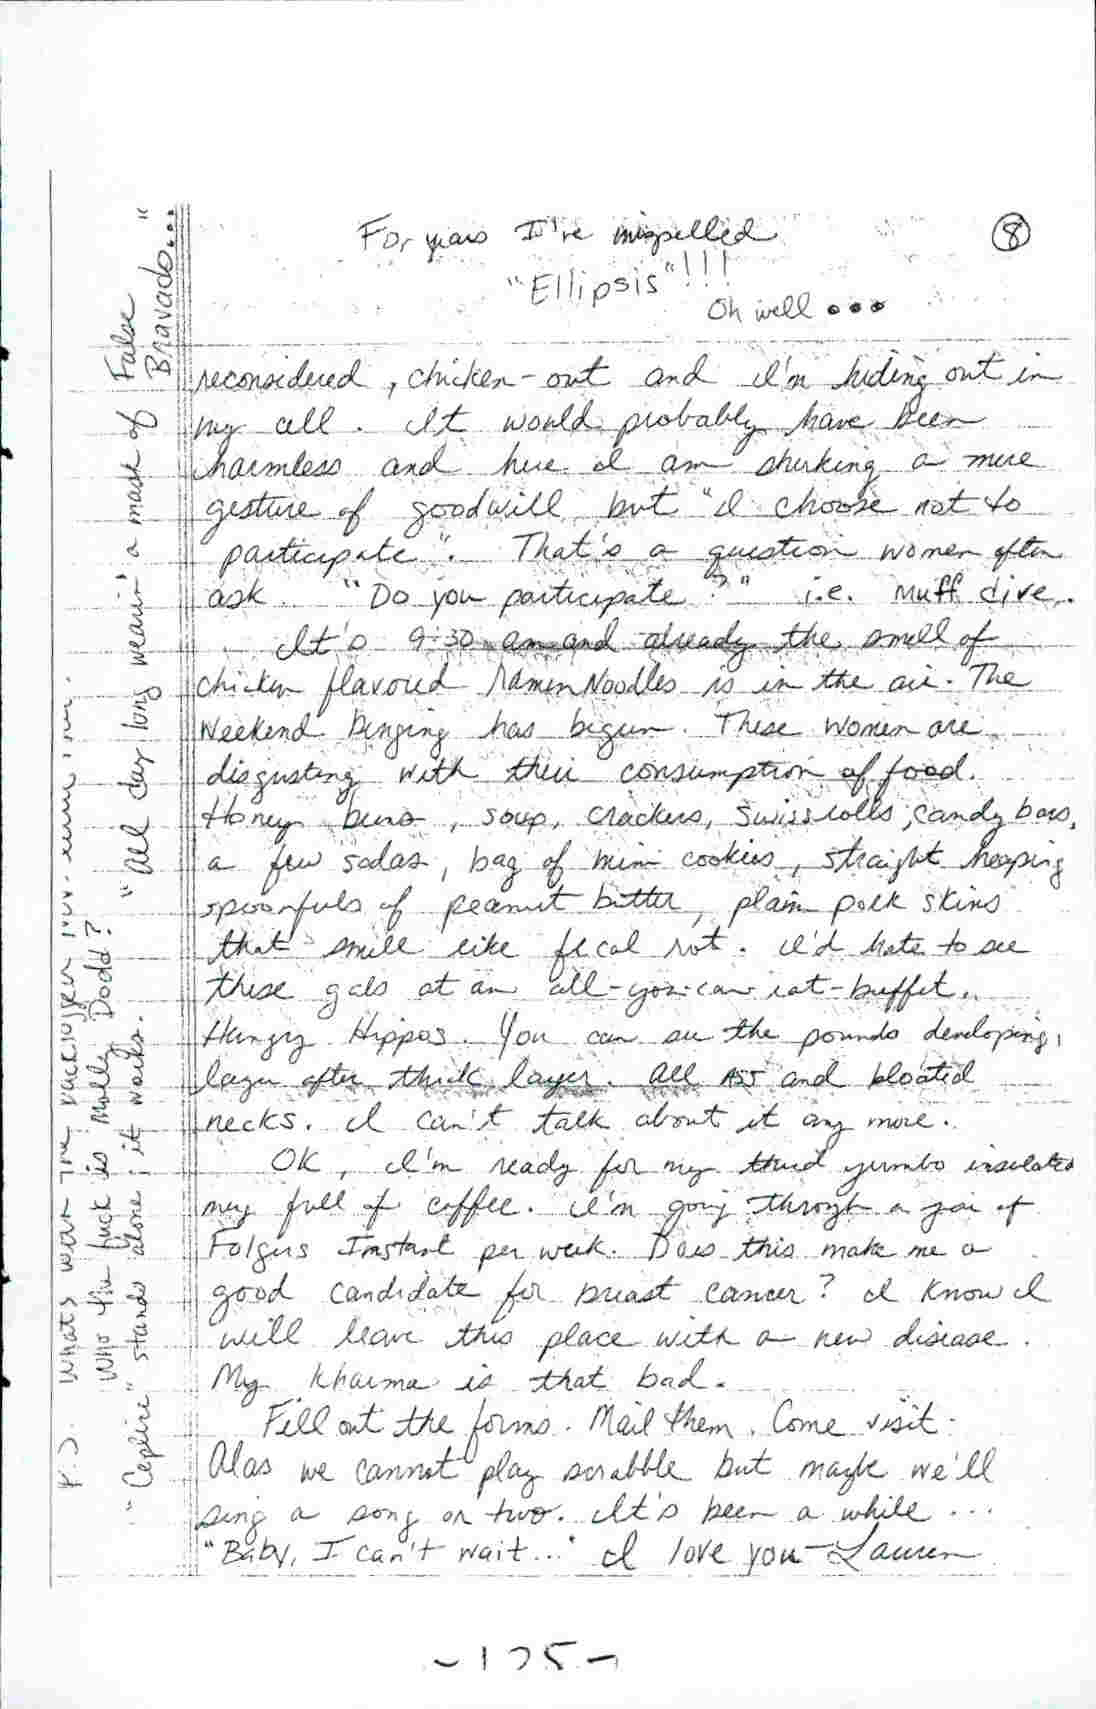 For years I've mispelled
"Ellipsis"!!!
Oh well ...
8
reconsidered, chicken-out and I'm hiding out in
my cell. It would probably have been
harmless and here I am shirking a mere
gesture of goodwill but "I choose not to
participate". That's a question women often
ask. "Do you participate?" i.e. muff dive.
It's 9:30 am and already the smell of
chicken flavored Ramen Noodles is in the air. The
Weekend binging has begun. These women are
disgusting with their consumption of food.
Honey buns, soup, crackers, swiss rolls, candy bars,
a few sodas, bag of mini cookies, straight heaping
spoonfuls of peanut butter, plain pork skins
that smell like fecal rot. I'd hate to see
these gals at an all-you-can eat-buffet.
Hungry Hippos. You can see the pounds developing,
layer after thick layer. All ASS and bloated
necks. I can't talk about it any more.
OK, I'm ready for my third yumbo insulated
mug full of coffee. I'm going through a jar of
Folgers Instant per week. Does this make me a
good candidate for breast cancer? I know I
will leave this place with a new disease.
My kharma is that bad.
Fill out the forms. Mail them. Come visit.
Alas we cannot play scrabble but maybe we'll
sing a song or two. It's been a while...
"Baby, I can't wait..." I love you - Lauren
P.S. What's with the
Who the fuck is Molly Dodd? "All day long wearin' a mask of False
Bravado..."
" stands alone; it works.
-125-